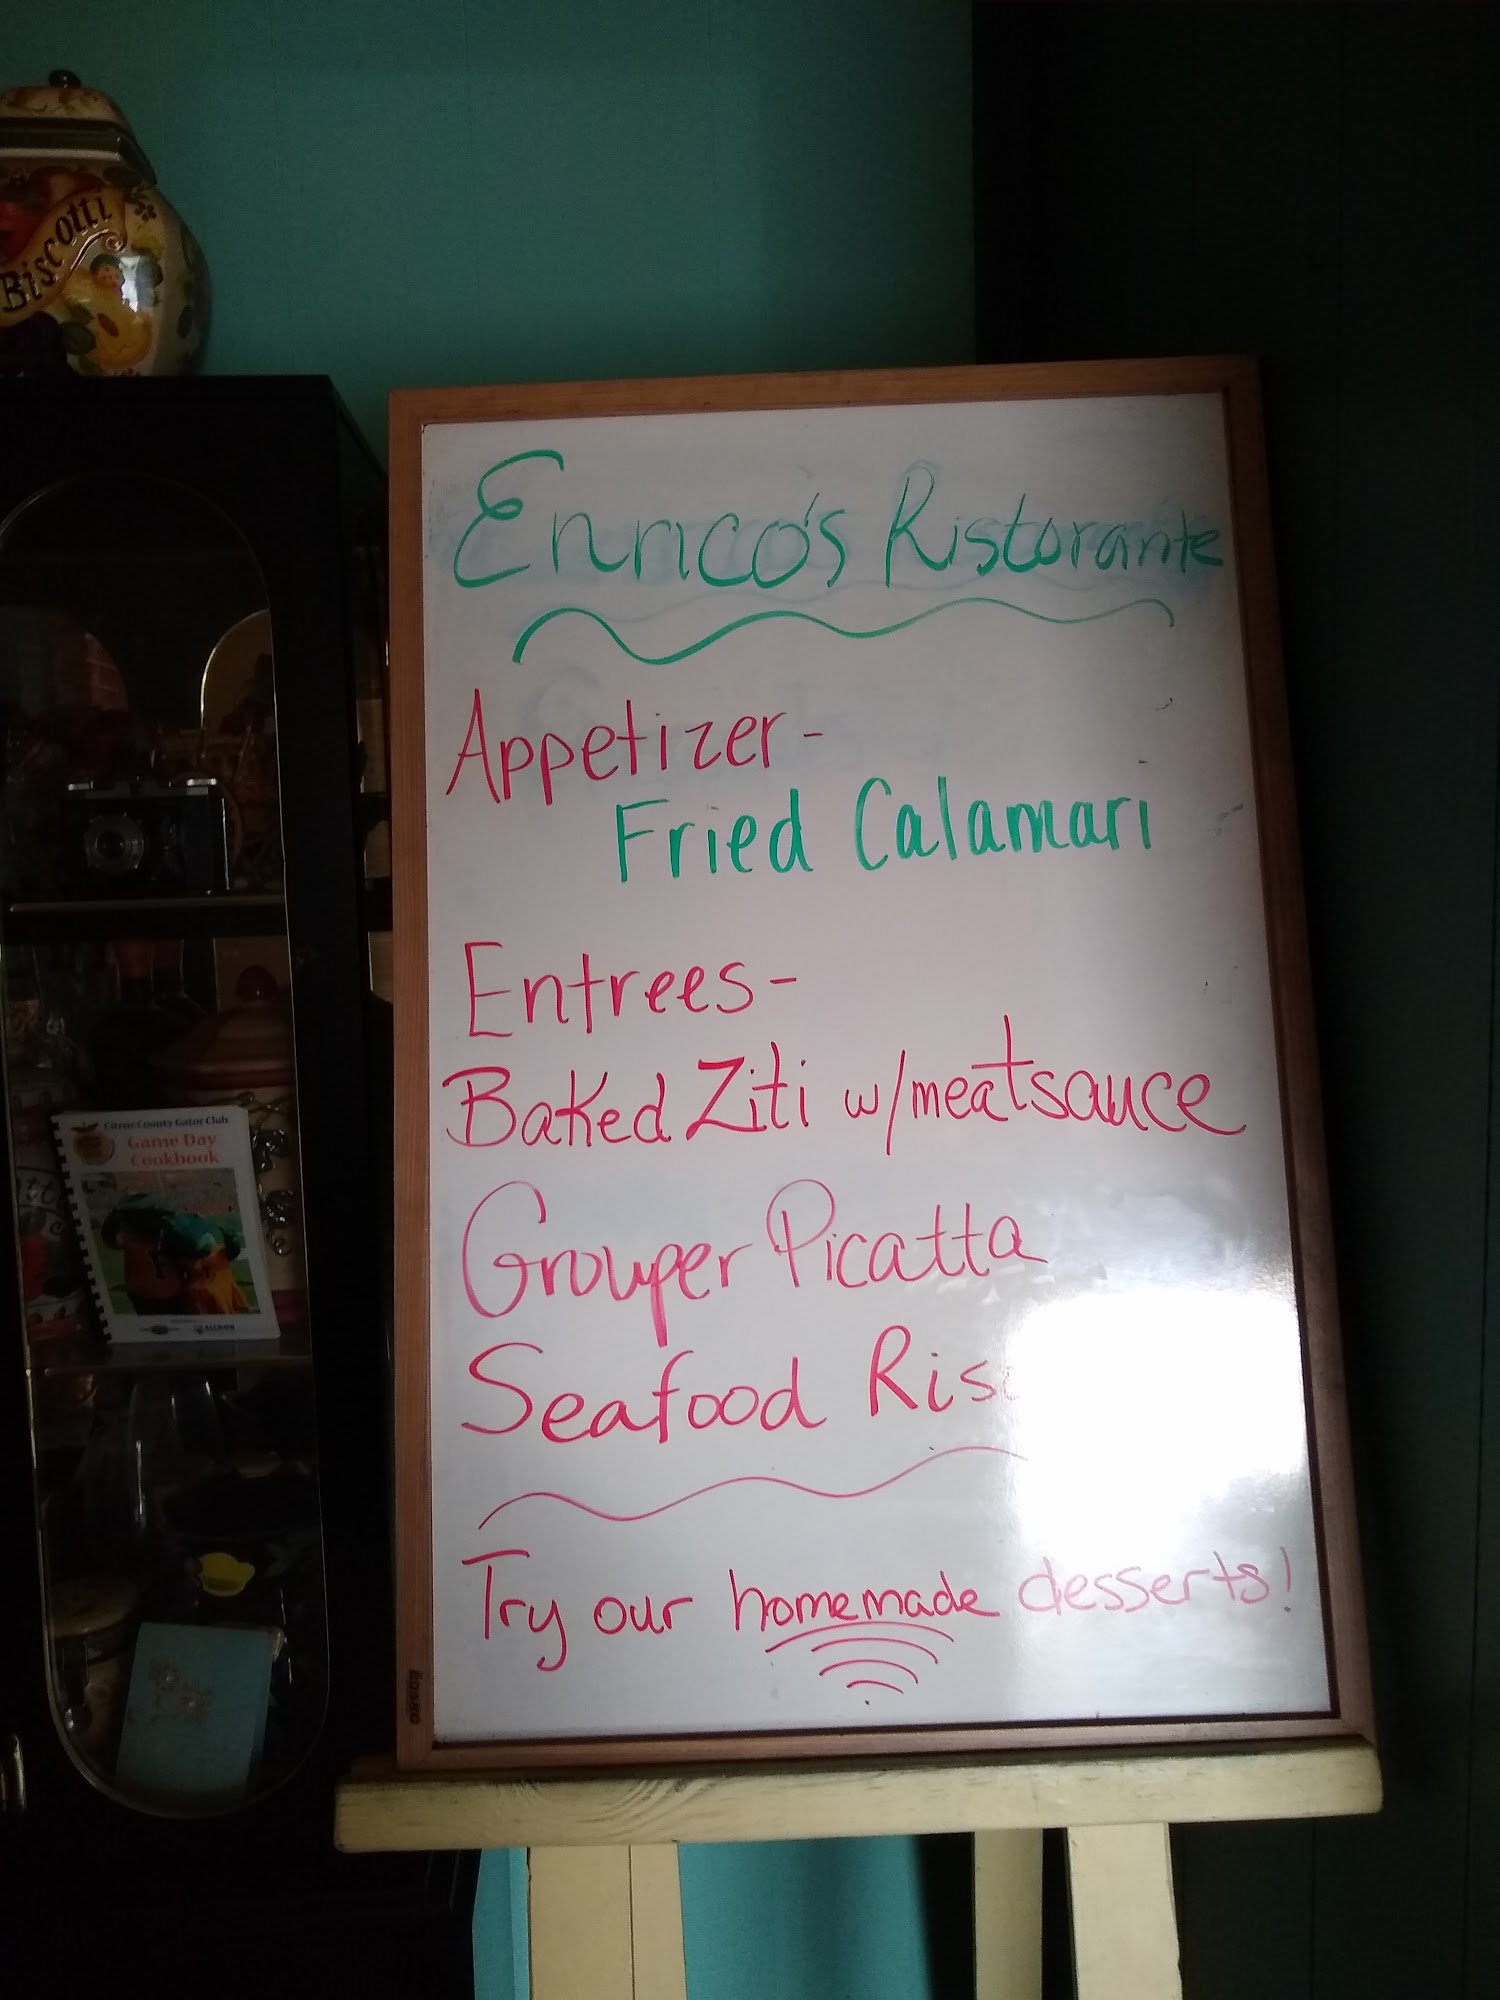 Biscotti
Enrico's Ristorante
Appetizer-
Fried Calamari
Entrees-
Baked Ziti w/meatsauce
Grouper Picatta
Seafood
Try our homemade desserts!
Citrus County Gator Club
Game Day
Cookbook